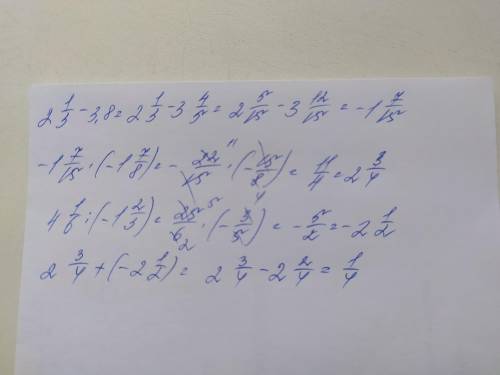 2 1/3 - 3,8 = 2 1/3 - 3 4/5 = 2 5/15 - 3 12/15 = -1 7/15
-1 7/15 · (-1 7/8) = - 22/15 · (- 15/8) = 11/4 = 2 3/4
4 1/6 : (-1 2/3) = 25/6 · (- 3/5) = - 5/2 = -2 1/2
2 3/4 + (-2 1/2) = 2 3/4 - 2 2/4 = 1/4